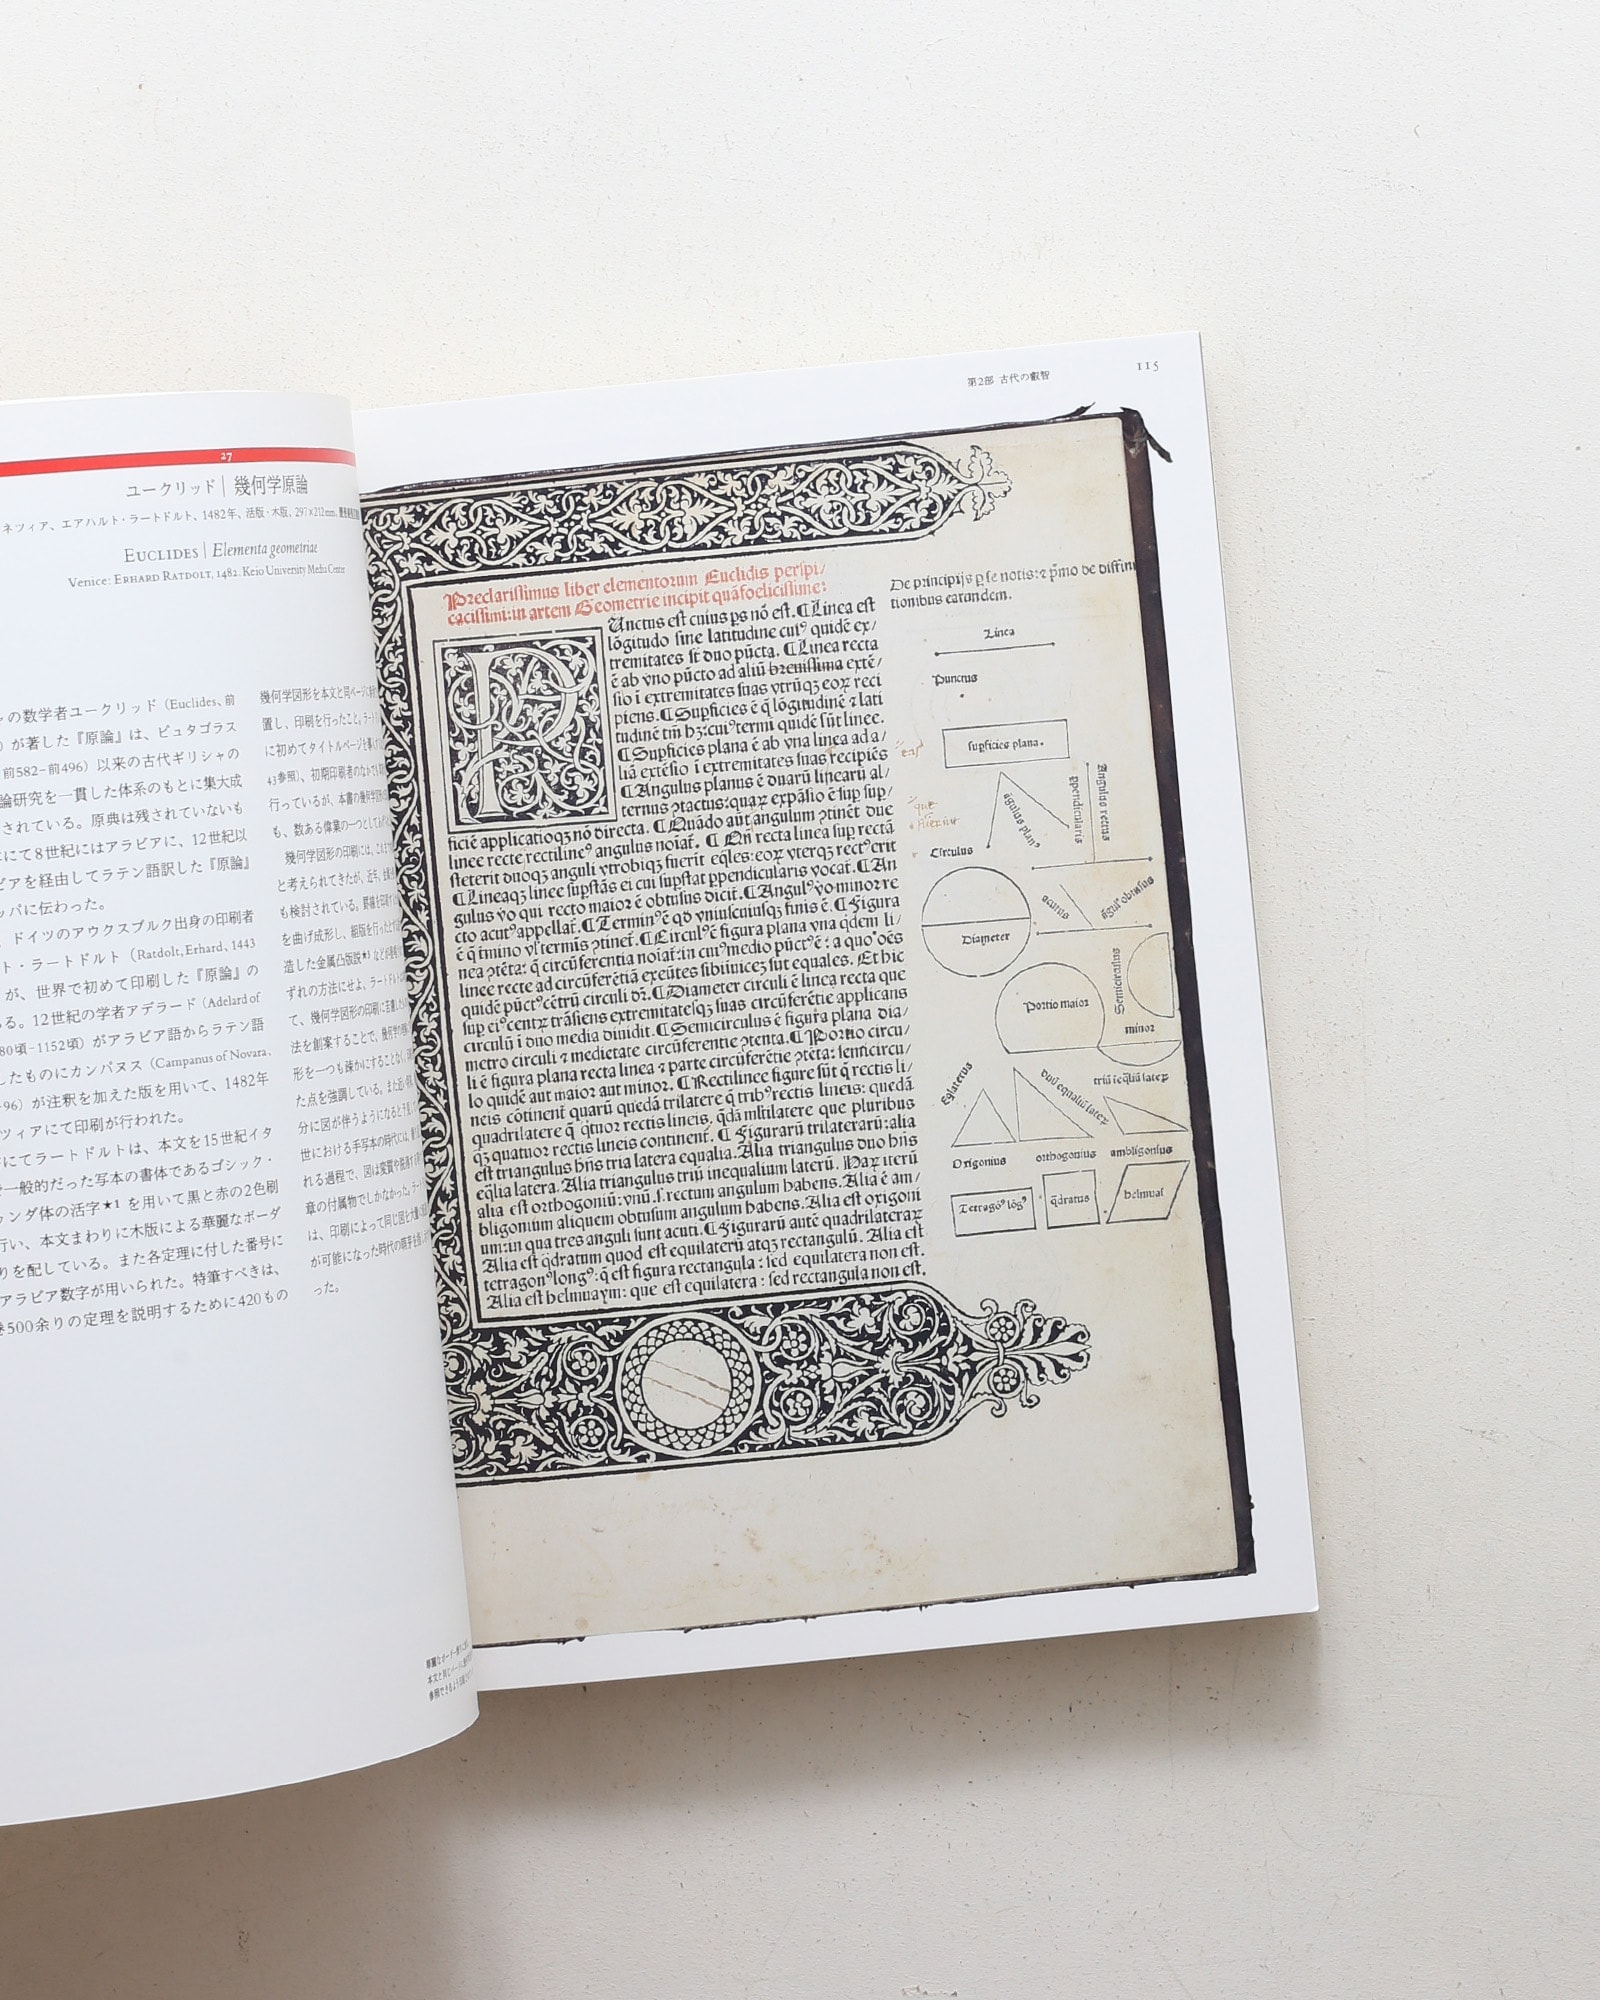 27
ユークリッド | 幾何学原論
ネツィア、エアハルト・ラートドルト、1482年、活版・木版、297×212mm、
EUCLIDES | Elementa geometriae
Venice: ERHARD RATDOLT, 1482. Keio University Media Center
の数学者ユークリッド（Euclides、前
）が著した『原論』は、ピュタゴラス
前582–前496）以来の古代ギリシャの
論研究を一貫した体系のもとに集大成
されている。原典は残されていないも
にて8世紀にはアラビアに、12世紀以
ビアを経由してラテン語訳した『原論』
ッパに伝わった。
、ドイツのアウクスブルク出身の印刷者
ト・ラートドルト（Ratdolt, Erhard, 1443
が、世界で初めて印刷した『原論』の
る。12世紀の学者アデラード（Adelard of
80頃–1152頃）がアラビア語からラテン語
したものにカンパヌス（Campanus of Novara,
96）が注釈を加えた版を用いて、1482年
ツィアにて印刷が行われた。
にてラートドルトは、本文を15世紀イタ
一般的だった写本の書体であるゴシック・
ンダ体の活字★1 を用いて黒と赤の2色刷
行い、本文まわりに木版による華麗なボーダ
りを配している。また各定理に付した番号に
アラビア数字が用いられた。特筆すべきは、
巻500余りの定理を説明するために420もの
幾何学図形を本文と同ページに
置し、印刷を行ったこと。
に初めてタイトルページを
43参照）、初期印刷者のなかでも
行っているが、本書の幾何学図
も、数ある偉業の一つとして
幾何学図形の印刷には、
と考えられてきたが、近年、
も検討されている。
を曲げ成形し、
造した金属凸版説★3
ずれの方法にせよ、
て、幾何学図形の印刷に
法を創案することで、
形を一つも疎かにすることなく
た点を強調している。
分に図が伴うようになると
世における手写本の時代には、
れる過程で、図は変質や
章の付属物でしかなかった。
は、印刷によって同じ図を大量に
が可能になった時代の
った。
第2部 古代の叡智
115
Preclarissimus liber elementorum Euclidis perspi/
cacissimi: in artem Geometrie incipit quãfoelicissime:
Punctus est cuius ps nõ est. ¶ Linea est
lõgitudo sine latitudine cuiꝰ quidẽ ex/
tremitates st duo pũcta. ¶ Linea recta
ẽ ab vno pũcto ad aliũ breuissima extẽ/
sio ĩ extremitates suas vtrũqꝫ eoꝝ reci
piens. ¶ Supficies ẽ q̃ lõgitudinẽ ⁊ lati
tudinẽ tm̃ hꝫ: cuiꝰ termi quidẽ sũt linee.
¶ Supficies plana ẽ ab vna linea ad a/
liã extẽsio ĩ extremitates suas recipiẽs
¶ Angulus planus ẽ duarũ linearũ al/
ternus ꝯtactus: quaꝝ expãsio ẽ sup sup/
ficiẽ applicatioqꝫ nõ directa. ¶ Quãdo aũt angulum ꝯtinẽt due
linee recte rectilineꝰ angulus noiat̃. ¶ Qñ recta linea sup rectã
steterit duoqꝫ anguli vtrobiqꝫ fuerit eq̃les: eoꝝ vterqꝫ rectꝰ erit
¶ Lineaqꝫ linee supstãs ei cui supstat ppendicularis vocat̃. ¶ An
gulus vo qui recto maior ẽ obtusus dicit̃. ¶ Angulꝰ vo minor re
cto acutꝰ appellat̃. ¶ Terminꝰ ẽ qd vniuscuiusqꝫ finis ẽ. ¶ Figura
ẽ q̃ tmino vl terminis ꝯtinet̃. ¶ Circulꝰ ẽ figura plana vna qdem li/
nea ꝯtẽta: q̃ circũferentia noiat̃: in cuiꝰ medio pũctꝰ ẽ: a quo oẽs
linee recte ad circũferẽtiã exeũtes sibiinuicez sut equales. Et hic
quidẽ pũctꝰ cẽtrũ circuli dr̃. ¶ Diameter circuli ẽ linea recta que
sup eiꝰ centꝝ trãsiens extremitatesqꝫ suas circũferẽtie applicans
circulũ ĩ duo media diuidit. ¶ Semicirculus ẽ figura plana dia/
metro circuli ⁊ medietate circũferentie ꝯtenta. ¶ Portio circu/
li ẽ figura plana recta linea ⁊ parte circũferẽtie ꝯtẽta: semicircu/
lo quidẽ aut maior aut minor. ¶ Rectilinee figure sũt q̃ rectis li/
neis cõtinent̃ quarũ quedã trilatere q̃ tribꝰ rectis lineis: quedã
quadrilatere q̃ q̃tuor rectis lineis. qdã mltilatere que pluribus
qꝫ quatuor rectis lineis continent̃. ¶ Figurarũ trilaterarũ: alia
est triangulus hñs tria latera equalia. Alia triangulus duo hñs
eq̃lia latera. Alia triangulus triũ inequalium laterũ. Haꝝ iterũ
alia est orthogoniũ: vnũ .s. rectum angulum habens. Alia ẽ am/
bligonium aliquem obtusum angulum habens. Alia est oxigoni
um: in qua tres anguli sunt acuti. ¶ Figurarũ autẽ quadrilateraꝝ
Alia est q̃dratum quod est equilaterũ atqꝫ rectangulũ. Alia est
tetragonꝰ longꝰ: q̃ est figura rectangula: sed equilatera non est.
Alia est helmuaym: que est equilatera: sed rectangula non est.
De principijs p se notis: ⁊ pmo de diffini
tionibus earundem.
Linea
Punctus
supficies plana.
ãgulus planꝰ
ppendicularis
Angulus rectus
Circulus
Diameter
acutus
ãgulꝰ obtusus
Portio maior
Semicirculus
minor
Eq̃laterus
duũ equaliũ lateꝝ
triũ ĩeq̃liũ lateꝝ
Oxigonius
orthogonius
ambligonius
Tetragõꝰ lõgꝰ
q̃dratus
helmuaĩ